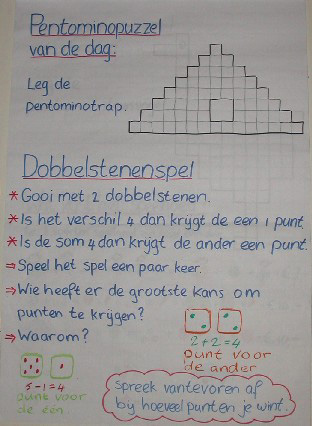 Pentominopuzzel
van de dag:
Leg de
pentominotrap.
Dobbelstenenspel
* Gooi met 2 dobbelstenen.
* Is het verschil 4 dan krijgt de een 1 punt.
* Is de som 4 dan krijgt de ander een punt.
⇒ Speel het spel een paar keer.
⇒ Wie heeft er de grootste kans om
punten te krijgen?
⇒ Waarom?
2+2=4
punt voor
de ander
5-1=4
punt voor
de een.
Spreek van tevoren af
bij hoeveel punten je wint.